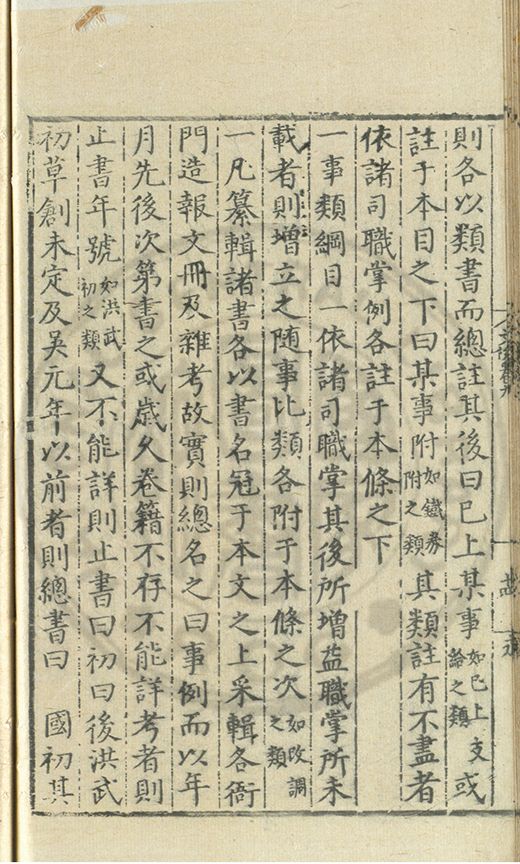 則各以類書而總註其後曰已上某事如已上支給之類或
註于本目之下曰某事附如鐵券附之類其類註有不盡者
依諸司職掌例各註于本條之下
一事類綱目一依諸司職掌其後所增益職掌所未
載者則增立之隨事比類各附于本條之次如改調之類
一凡纂輯諸書各以書名冠于本文之上采輯各衙
門造報文冊及雜考故實則總名之曰事例而以年
月先後次第書之或歲久卷籍不存不能詳考者則
止書年號如洪武初之類又不能詳則止書曰初曰後洪武
初草創未定及吳元年以前者則總書曰　國初其